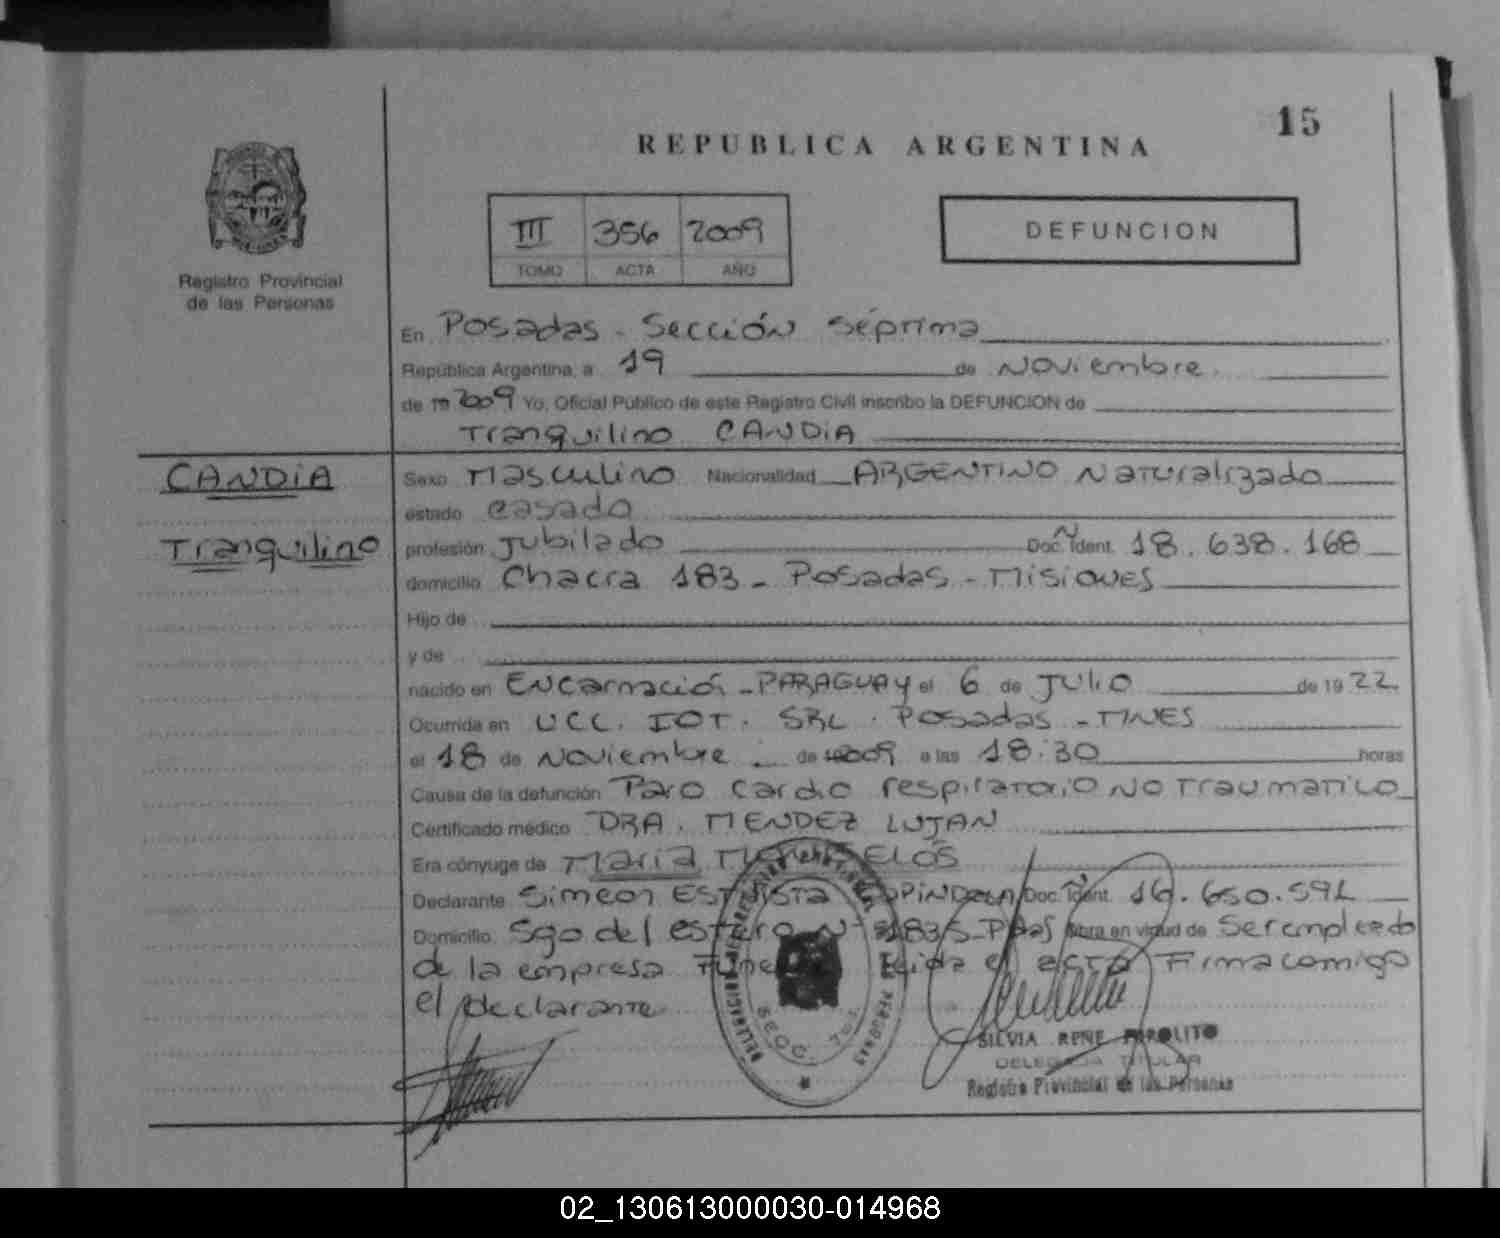 15
REPUBLICA ARGENTINA
III 356 2009
TOMO ACTA AÑO
DEFUNCION
Registro Provincial
de las Personas
En Posadas - Sección Séptima
República Argentina, a 19 de Noviembre
de 19 2009 Yo, Oficial Público de este Registro Civil inscribo la DEFUNCION de
Tranquilino CANDIA
CANDIA
Tranquilino
Sexo Masculino Nacionalidad ARGENTINO Naturalizado
estado casado
profesión Jubilado Doc. Ident. Nº 18.638.168
domicilio Chacra 183 - Posadas - Misiones
Hijo de
y de
nacido en Encarnación - PARAGUAY el 6 de Julio de 1922
Ocurrida en UCC. IOT. SRL. Posadas - MNES
el 18 de Noviembre de 2009 a las 18:30 horas
Causa de la defunción Paro cardio respiratorio NO Traumatico
Certificado médico DRA. MENDEZ LUJAN
Era cónyuge de Maria
Declarante Simeon Doc. Ident. Nº 16.650.591
Domicilio Sgo del estero Nº 1835 - Pdas Obra en virtud de Ser empleado
de la empresa Leida el acta Firma comigo
el declarante
SECC. 7ma.
SILVIA RENE
DELEGADA TITULAR
Registro Provincial de las Personas
02_130613000030-014968